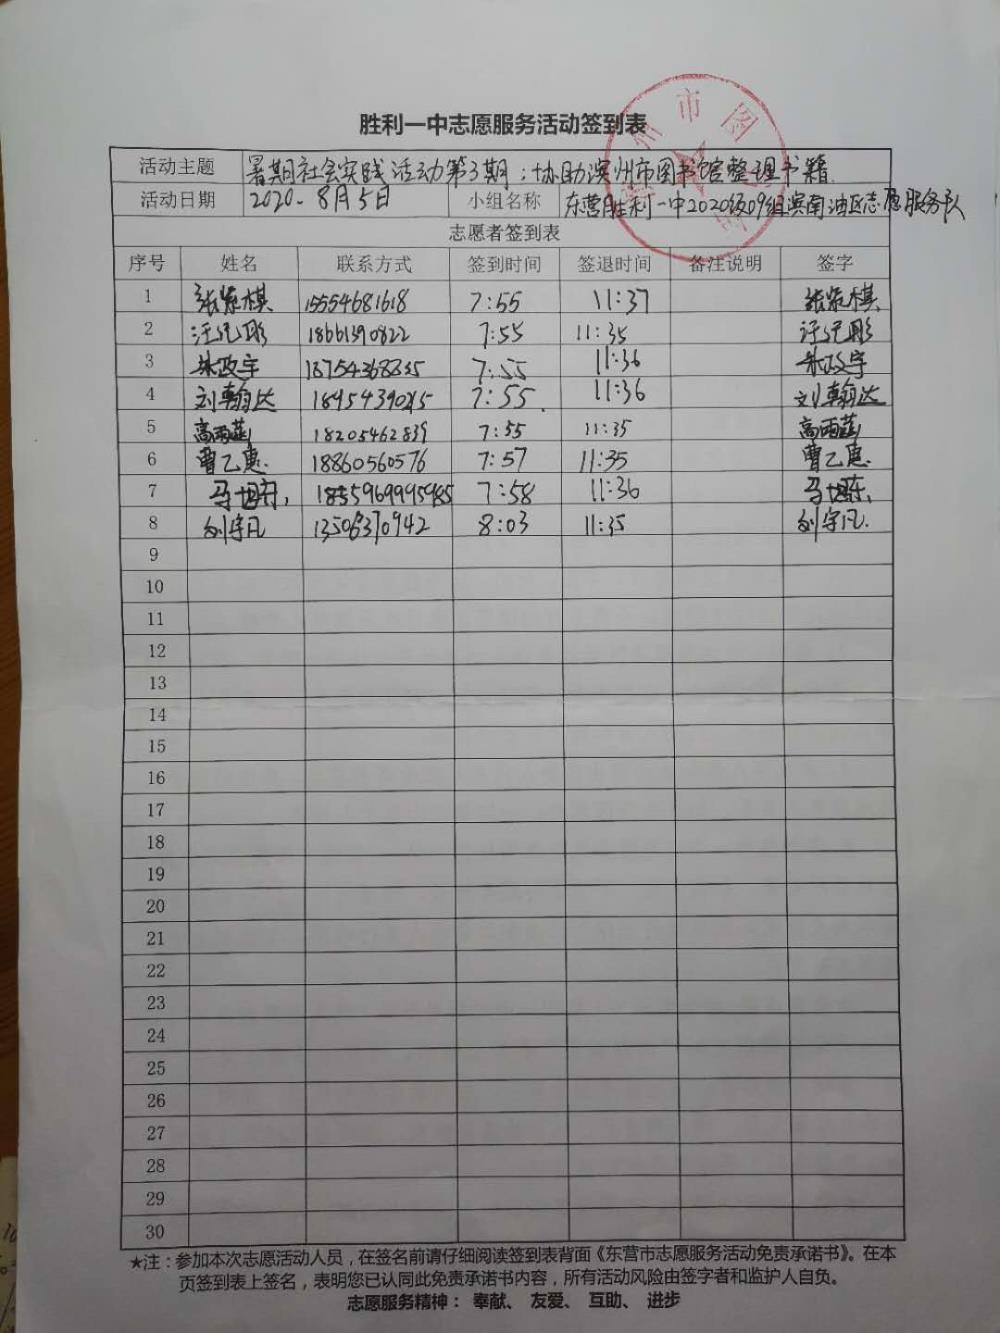 胜利一中志愿服务活动签到表
活动主题 暑期社会实践活动第3期：协助滨州市图书馆整理书籍
活动日期 2020.8月5日 小组名称 东营胜利一中2020级09组滨南油区志愿服务队
志愿者签到表
序号 姓名 联系方式 签到时间 签退时间 备注说明 签字
1 张紫棋 15554681618 7:55 11:37 张紫棋
2 汪纪彤 18661390822 7:55 11:35 汪纪彤
3 朱政宇 18754368335 7:55 11:36 朱政宇
4 刘翰达 7:55 11:36 刘翰达
5 高雨菡 18205462839 7:55 11:35 高雨菡
6 曹乙惠 18860560576 7:57 11:35 曹乙惠
7 7:58 11:36
8 刘宇凡 13506370942 8:03 11:35 刘宇凡
9
10
11
12
13
14
15
16
17
18
19
20
21
22
23
24
25
26
27
28
29
30
★注：参加本次志愿活动人员，在签名前请仔细阅读签到表背面《东营市志愿服务活动免责承诺书》。在本
页签到表上签名，表明您已认同此免责承诺书内容，所有活动风险由签字者和监护人自负。
志愿服务精神： 奉献、 友爱、 互助、 进步
州市图